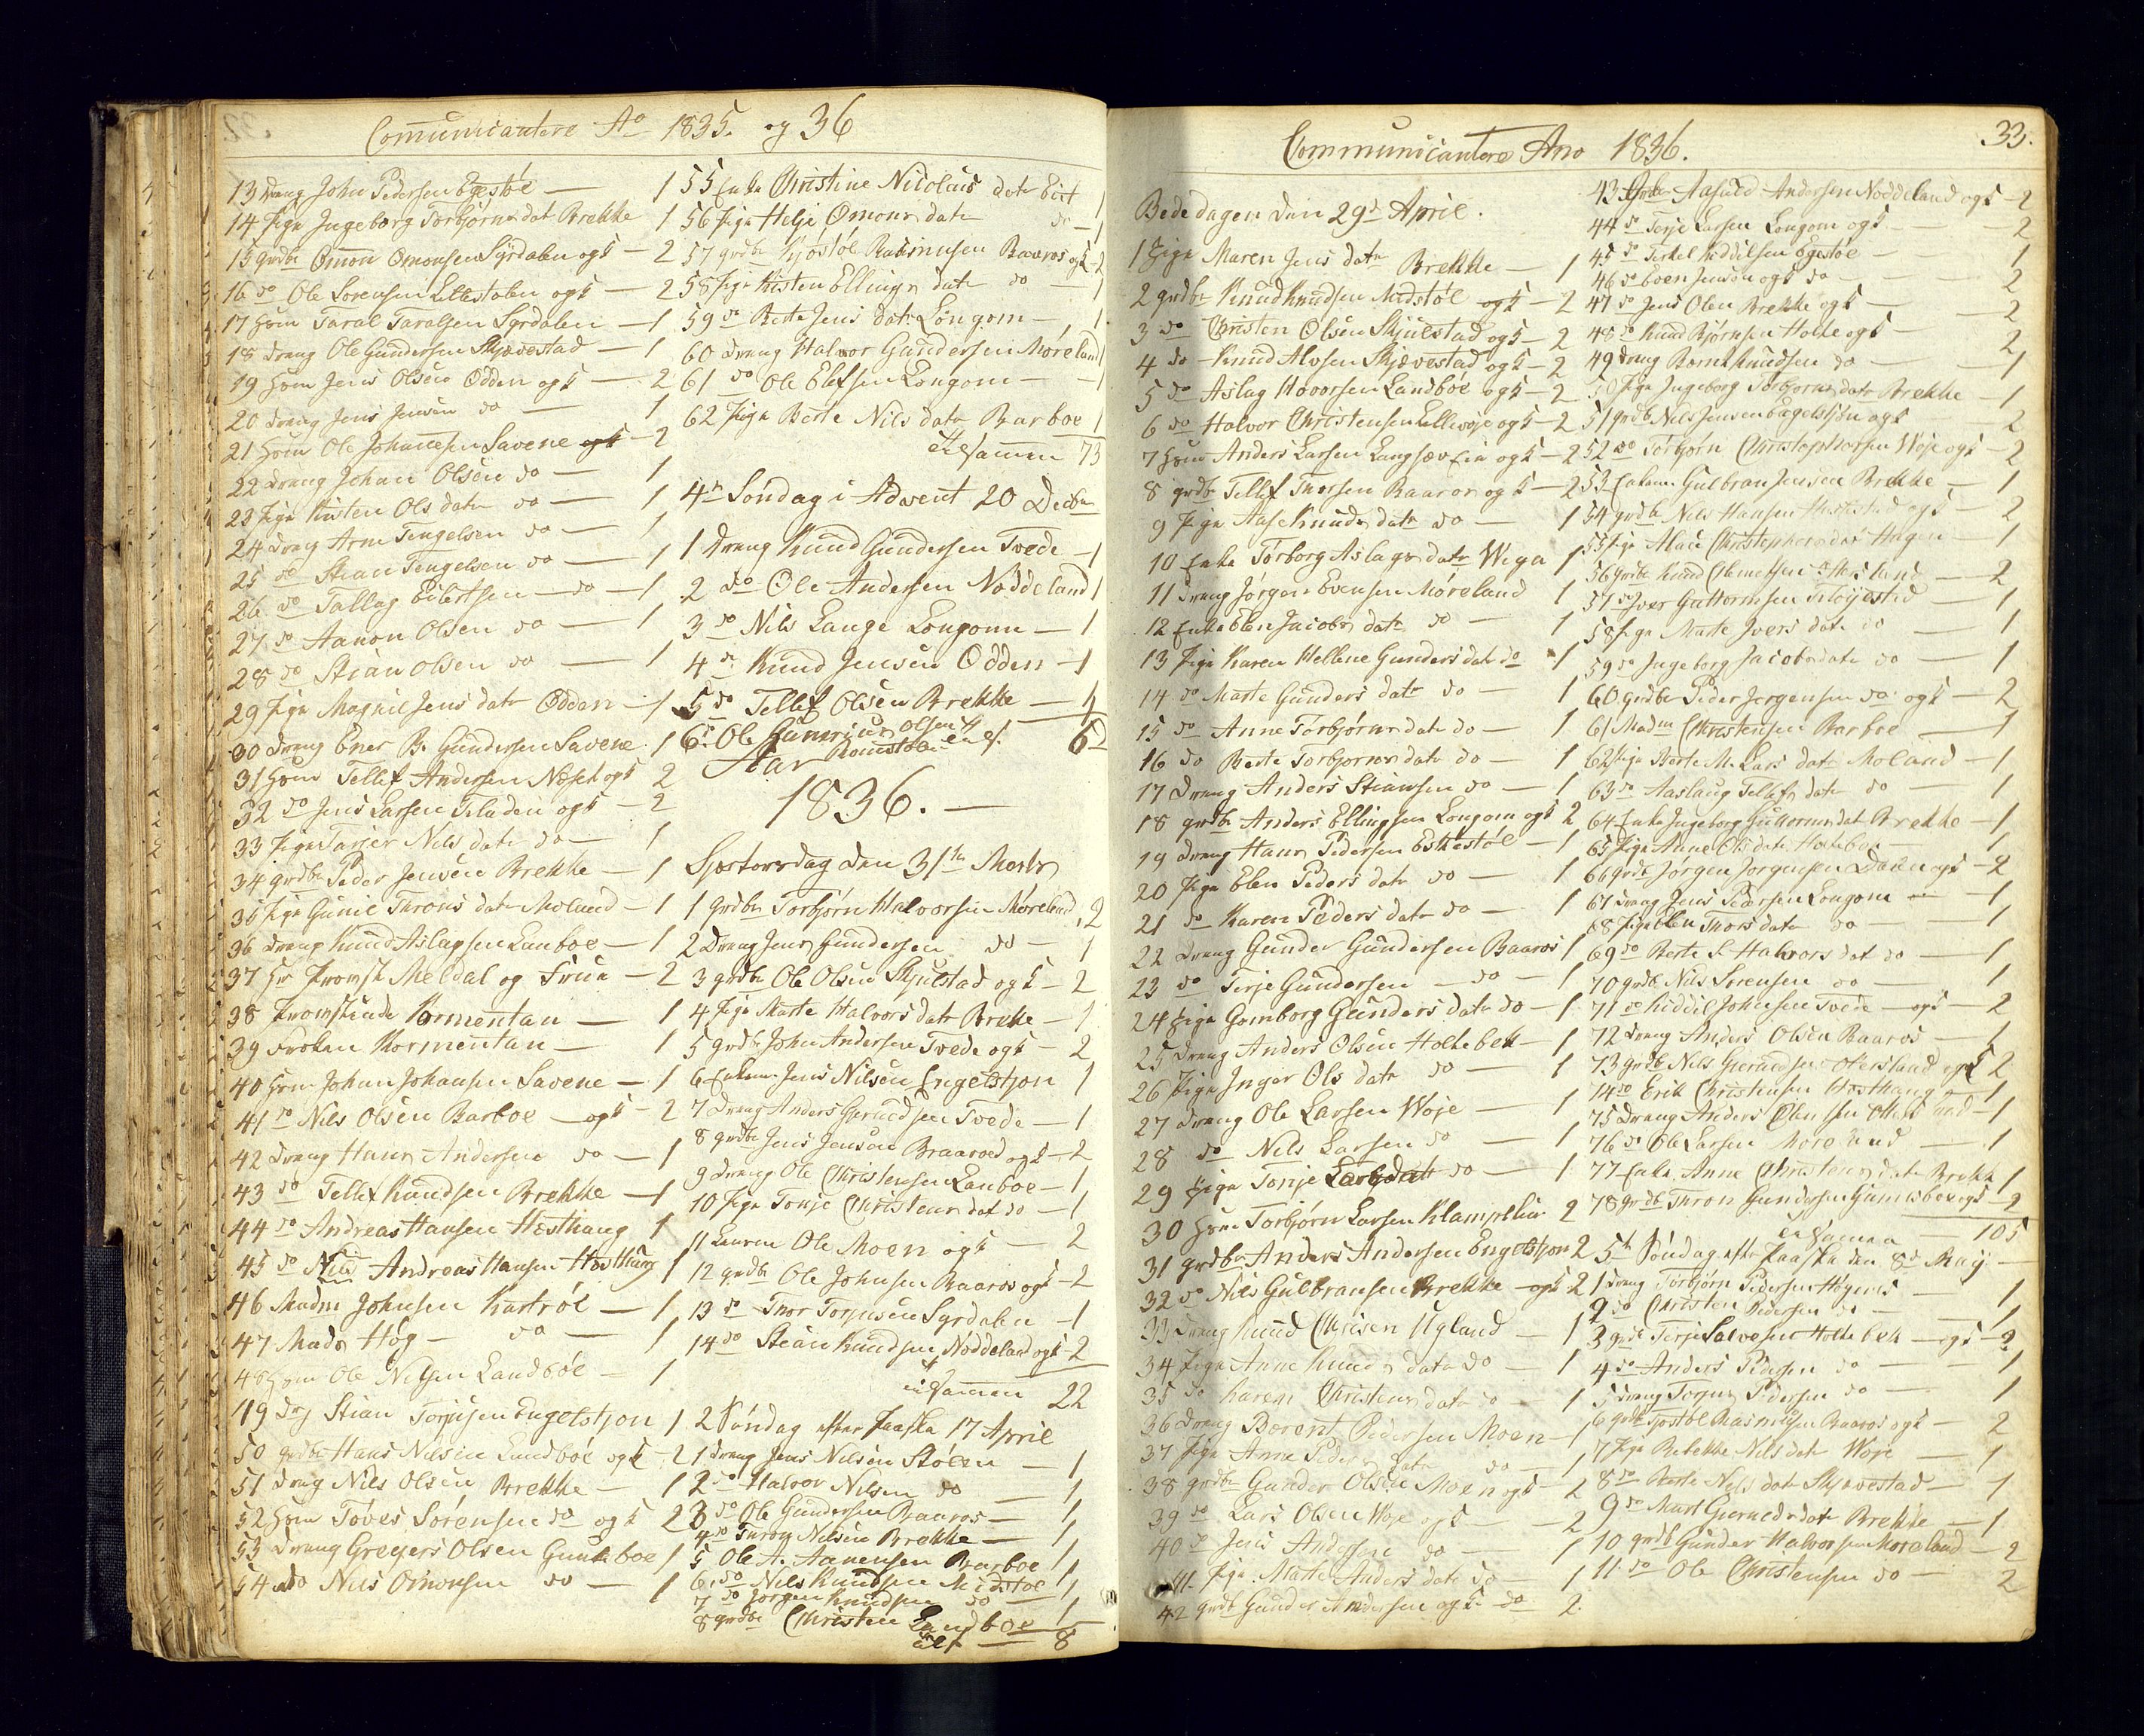 Comunicantere Ao 1835. og 36
13 Drang John Pedersen Egestøe — 1
14 Pige Ingeborg Torbjørns dat Brekke 1
15 grdbr Omon Omonsen Syrdalen ogk — 2
16 do Ole Sørensen Ellestølen ogk — 2
17 Hsm Taral Taralsen Syrdalen — 1
18 Drang Ole Gundersen Skjævestad — 1
19 Hsm Jens Olsen Odden ogk — 2
20 Drang Jens Jensen do — 1
21 Hsm Ole Johannesen Savene ogk — 2
22 Drang Johan Olsen do — 1
23 Pige Kirsten Ols datr do — 1
24 Drang Arne Tengelsen do — 1
25 do Stian Tengelsen do — 1
26 do Tallag Eilertsen — do — 1
27 do Aanon Olsen do — 1
28 do Stian Olsen do — 1
29 Pige Magnil Jens datr Odden — 1
30 Drang Ener B. Gundersen Savene 1
31 Hsm Tellef Andersen Neset ogk 2
32 do Jens Larsen Tiladen ogk — 2
33 Pige Tarjer Nils datr do — 1
34 grdbr Peder Jensen Brekke — 1
35 Pige Gunil Throns datr Moland — 1
36 Drang Knud Aslagsen Lanboe — 1
37 Hr Provst Meldal og Frue — 2
38 Provstinde Kormentan — 1
39 Frøken Kormentan — 1
40 Hsm Johan Johansen Savene — 1
41 do Nils Olsen Barboe — ogk — 2
42 Drang Hans Andersen do — 1
43 do Tellef Knudsen Brekke — 1
44 do Andreas Hansen Hesthaug 1
45 do Nils Andreas Hansen Hesthaug 1
46 Madm Johnsen Kastrøl — 1
47 Madm Høg — do — 1
48 Hsm Ole Nilsen Landbøe — 1
49 Drg Stian Torjusen Engelstjon 1
50 grdbr Hans Nilsen Landboe ogk — 2
51 Drang Nils Olsen Brekke — 1
52 Hsm Toves Sørensen do ogk 2
53 Drang Gregers Olsen Gunkeboe 1
54 do Nils Omonsen do — 1
55 Enke Christine Nicolais datr Eiet 1
56 Pige Helje Omons datr do — 1
57 grdbr Kjøstøl Rasmusen Baaros ogk 2
58 Pige Kisten Ellings datr do — 1
59 do Berte Jens datr Longom — 1
60 Drang Halvor Gundersen Moreland 1
61 do Ole Elefsen Longom — 1
62 Pige Berte Nils datr Barboe 1
tilsammen 73
4de Søndag i Advent 20 Decbr
1 Drang Knud Gundersen Tvede — 1
2 do Ole Andersen Noddeland 1
3 do Nils Lange Longom — 1
4 do Knud Jensen Odden — 1
5 do Tellef Olsen Brekke — 1
6. Ole Gunerius Olsen 6
Aar
1836. —
Sjøstorsdag den 31te Marts
1 Grdbr Torbjørn Halvorsen Møreland 2
2 Drang Jens Gundersen do — 1
3 grdbr Ole Olsen Skjulstad ogk — 2
4 Pige Marte Halvors datr Brekke — 1
5 grdbr John Andersen Tvede ogk — 2
6 Enkem Jens Nilsen Engelstjon 1
7 Drang Anders Gjerudsen Tvede — 1
8 grdbr Jens Jensen Braaroed ogk — 2
9 Drang Ole Christensen Lanboe — 1
10 Pige Tonje Christens dat do — 1
11 Ole Moen ogk — 2
12 grdbr Ole Johnsen Baaros ogk — 2
13 do Thor Torjusen Syrdalen — 1
14 do Stian Knudsen Noddeland ogk — 2
tilsammen 22
2 Søndag efter Paaska 17 April
1 Drang Jens Nilsen Stølen — 1
2 do Halvor Nilsen do — 1
3 do Ole Gundersen Baaros — 1
4 do Thron Nilsen Brekke — 1
5 Ole A. Aanensen Barboe 1
6 do Nils Knudsen Midstøl 1
7 do Jørgen Knudsen do 1
8 grdbr Christen Landboe 1
alt — 8
Communicantere Ano 1836.
33.
Bededagen den 29d April.
1 Pige Maren Jens datr Brekke — 1
2 grdbr Knud Knudsen Midstøl ogk — 2
3 do Christen Olsen Skjulstad ogk — 2
4 do Knud Alvsen Skjævestad ogk — 2
5 do Aslag Hovorsen Landboe ogk — 2
6 do Halvor Christensen Ellewøje ogk — 2
7 Hsm Anders Larsen Langsæv Eie ogk — 2
8 grdbr Tellef Thorsen Baaros ogk — 2
9 Pige Aase Knuds datr do — 1
10 Enke Torborg Aslags datr Wiga 1
11 Drang Jørgen Evensen Møreland 1
12 Enke Elen Jacobs datr do — 1
13 Pige Karen Hellene Gunders dat do 1
14 do Marte Gunders datr do — 1
15 do Anne Torbjørns datr do — 1
16 do Berte Torbjørns datr do — 1
17 Drang Anders Stiansen do — 1
18 grdbr Anders Ellingsen Longom ogk 2
19 Drang Hans Pedersen Eskestøl — 1
20 Pige Elen Peders datr do — 1
21 do Karen Peders datr do — 1
22 Drang Gunder Gundersen Baaros 1
23 do Terje Gundersen — do — 1
24 Pige Gomborg Gunders datr do — 1
25 Drang Anders Olsen Holtebek — 1
26 Pige Inger Ols datr do — 1
27 Drang Ole Larsen Woje — 1
28 do Nils Larsen do — 1
29 Pige Tonje Lars datr do — 1
30 Hsm Torbjørn Larsen Klamphei 2
31 grdbr Anders Andersen Engelstjon 2
32 do Nils Gulbransen Brekke — ogk 2
33 Drang Knud Chrisen Ugland — 1
34 Pige Anne Knuds datr do — 1
35 do Karen Christens datr do — 1
36 Drang Berent Pedersen Moen — 1
37 Pige Anne Peders datr do — 1
38 grdbr Gunder Olsen Moen ogk — 2
39 do Lars Olsen Woje ogk — 2
40 do Jens Andersen do — 1
41. Pige Marte Anders datr do — 1
42 grdb Gunder Andersen ogk do 2.
43 Grdbr Aasuld Andersen Noddeland ogk — 2
44 do Terje Larsen Longom ogk — 2
45 do Terkel Kiddilsen Egestøe — 1
46 do Even Jensen ogk do — 2
47 do Jens Olsen Brekke ogk — 2
48 do Knud Bjørnsen Holte ogk — 2
49 Drang Bernt Knudsen do — 1
50 Pige Ingeborg Torbjorns datr Brekke — 1
51 grdb Nils Jensen Engelstjon ogk — 2
52 do Torbjørn Christophersen Woje ogk — 2
53 Enkem Gulbran Jensen Brekke — 1
54 grdb Nils Hansen ogk — 2
55 Pige Alace Christophersdat Hagen — 1
56 grdb Knud Clemetsen — 2
57 do Iver Guttormsen — 1
58 Pige Marte Ivers datr do — 1
59 do Ingeborg Jacobs datr do — 1
60 Grdbr Peder Jorgensen do ogk — 2
61 Madm Christensen Barboe — 1
62 Pige Berte M. Lars datr Moland — 1
63 do Aaslaug Tellefs datr do — 1
64 Enke Ingeborg Guttorms dat Brekke — 1
65 Pige Anne Ols datr Holtebek 1
66 grdb Jørgen Jorgensen Dalen ogk — 2
67 Drang Jens Pedersen Longom — 1
68 Pige Elen Thors datr do — 1
69 do Berte S. Halvors dat do — 1
70 grdb Nils Sorensen do — 1
71 do Kiddil Johnsen Tvede — ogk — 2
72 Drang Anders Olsen Baaros — 1
73 grdb Nils Gjerudsen Otersland ogk 2
74 do Erik Christensen Hesthaug — 1
75 Drang Anders — 1
76 do Ole Larsen Moreland — 1
77 Enke Anne Christens datr Brekke 1
78 grdb Thron Gundersen Gunnisboe ogk — 2
tilsamen — 105
5te Søndag efter Paaska den 8d May —
1 Drang Torbjørn Pedersen — 1
2 do Christen Pedersen do — 1
3 grdb Terje Salvesen Holtebek — ogk — 2
4 do Anders Pedersen do — 1
5 Drang Torjus Pedersen do — 1
6 grdb Kjostøl Rasmusen Baaros ogk — 2
7 Pige Rebekke Nils dat Woje — 1
8 do Berte Nils datr Skjævestad — 1
9 do Mart Gjeruds dat Brekke — 1
10 grdb Gunder Halvorsen Moreland — 2
11. do Ole Christensen do — 2